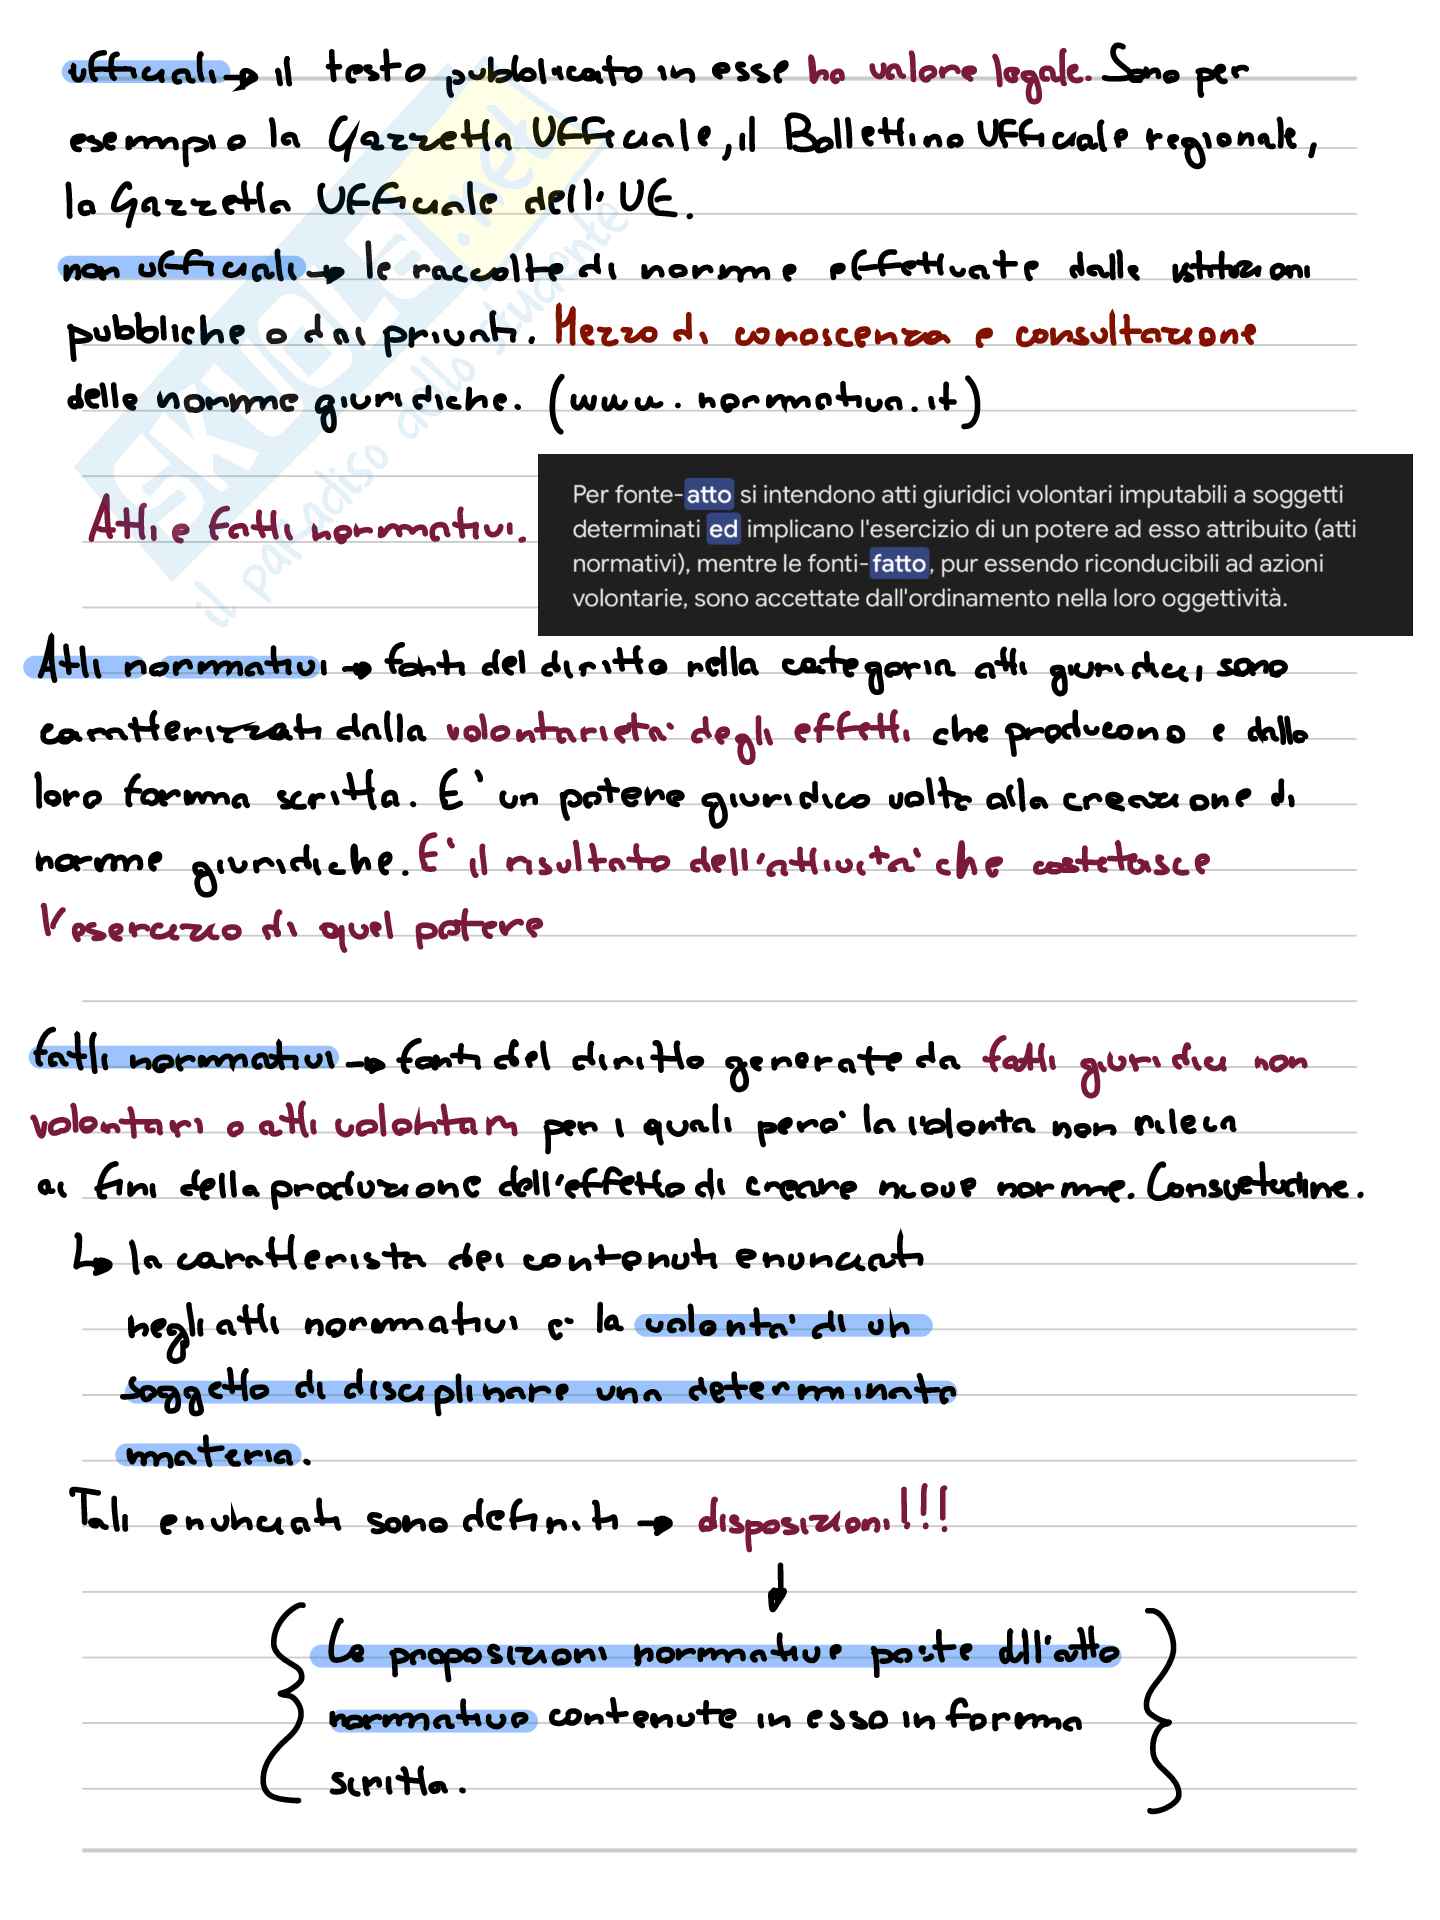 ufficiali → il testo pubblicato in esse ha valore legale. Sono per
esempio la Gazzetta Ufficiale, il Bollettino Ufficiale regionale,
la Gazzetta Ufficiale dell'UE.
non ufficiali → le raccolte di norme effettuate dalle istituzioni
pubbliche o dai privati. Mezzo di conoscenza e consultazione
delle norme giuridiche. (www.normativa.it)
SKUOLA.net
il paradiso dello studente
Atti e fatti normativi.
Per fonte-atto si intendono atti giuridici volontari imputabili a soggetti
determinati ed implicano l'esercizio di un potere ad esso attribuito (atti
normativi), mentre le fonti-fatto, pur essendo riconducibili ad azioni
volontarie, sono accettate dall'ordinamento nella loro oggettività.
Atti normativi → fonti del diritto nella categoria atti giuridici, sono
caratterizzati dalla volontarietà degli effetti che producono e dalla
loro forma scritta. E' un potere giuridico volto alla creazione di
norme giuridiche. E' il risultato dell'attività che costituisce
l'esercizio di quel potere
fatti normativi → fonti del diritto generate da fatti giuridici non
volontari o atti volontari per i quali però la volontà non rileva
ai fini della produzione dell'effetto di creare nuove norme. Consuetudine.
↳ la caratterista dei contenuti enunciati
negli atti normativi è la volontà di un
soggetto di disciplinare una determinata
materia.
Tali enunciati sono definiti → disposizioni!!!
↓
Le proposizioni normative poste dll'atto
normativo contenute in esso in forma
scritta.